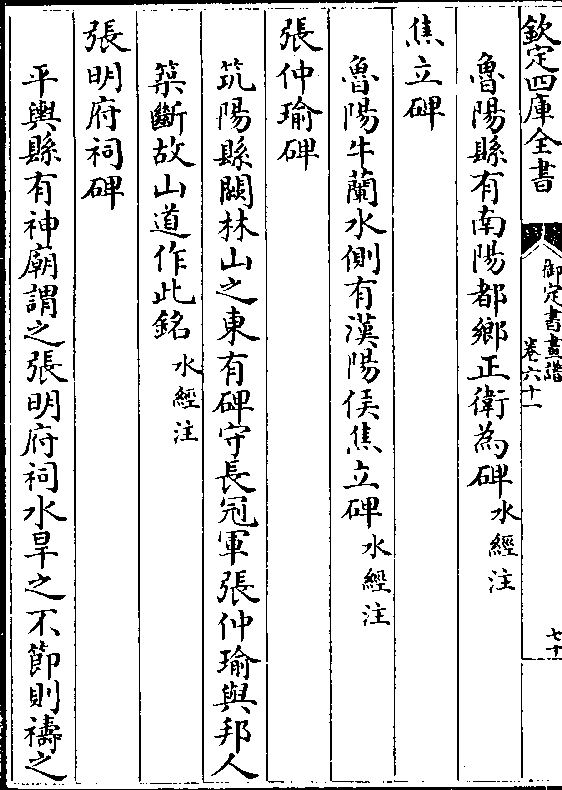 欽定四庫全書
御定書畫譜
卷六十一
七十
魯陽縣有南陽都鄉正衛為碑水經注
焦立碑
魯陽牛蘭水側有漢陽侯焦立碑水經注
張仲瑜碑
筑陽縣闕林山之東有碑守長冠軍張仲瑜與邦人
築斷故山道作此銘水經注
張明府祠碑
平輿縣有神廟謂之張明府祠水旱之不節則禱之